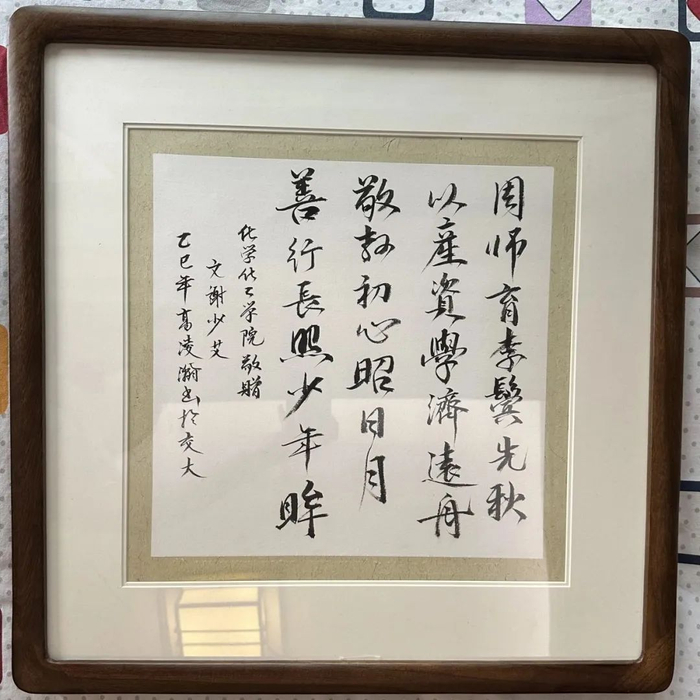 周师育李鬓先秋
以産資學濟遠舟
敬教初心昭日月
善行長照少年眸
化学化工学院敬赠
文谢少艾
乙巳年高凌瀚书於交大